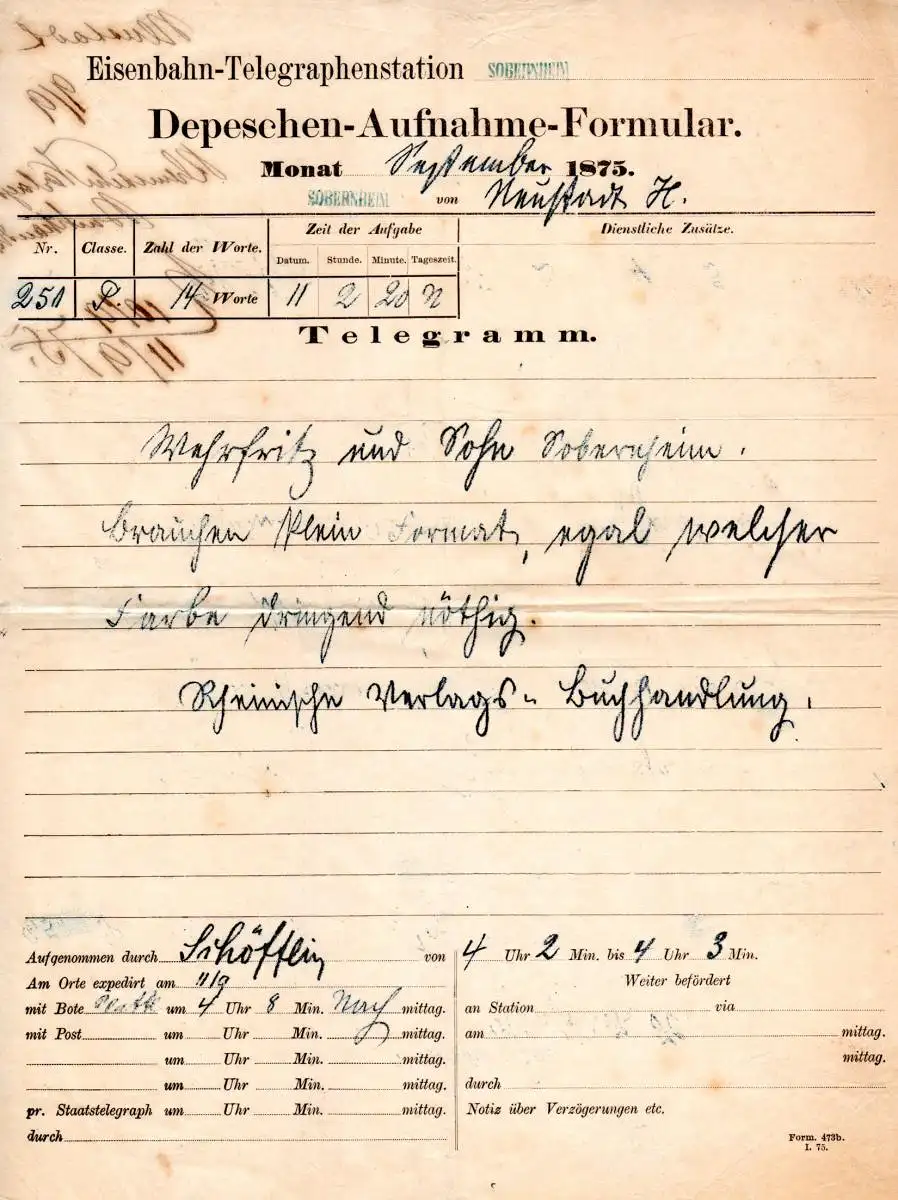 Eisenbahn-Telegraphenstation SOBERNHEIM
Depeschen-Aufnahme-Formular.
Monat September 1875.
SOBERNHEIM von Neustadt H.
Nr. Classe. Zahl der Worte. Zeit der Aufgabe Dienstliche Zusätze.
Datum. Stunde. Minute. Tageszeit.
251 P. 14 Worte 11 2 20 N
Telegramm.
Wehrfritz und Sohn Sobernheim.
brauchen klein Format, egal welcher
Farbe dringend nöthig.
Rheinische Verlags-Buchhandlung.
Aufgenommen durch Schöfflin von 4 Uhr 2 Min. bis 4 Uhr 3 Min.
Am Orte expedirt am 11/9 Weiter befördert
mit Bote um 4 Uhr 8 Min. Nach mittag. an Station via
mit Post um Uhr Min. mittag. am mittag.
um Uhr Min. mittag. mittag.
um Uhr Min. mittag. durch
pr. Staatstelegraph um Uhr Min. mittag. Notiz über Verzögerungen etc.
durch
Form. 473b.
I. 75.